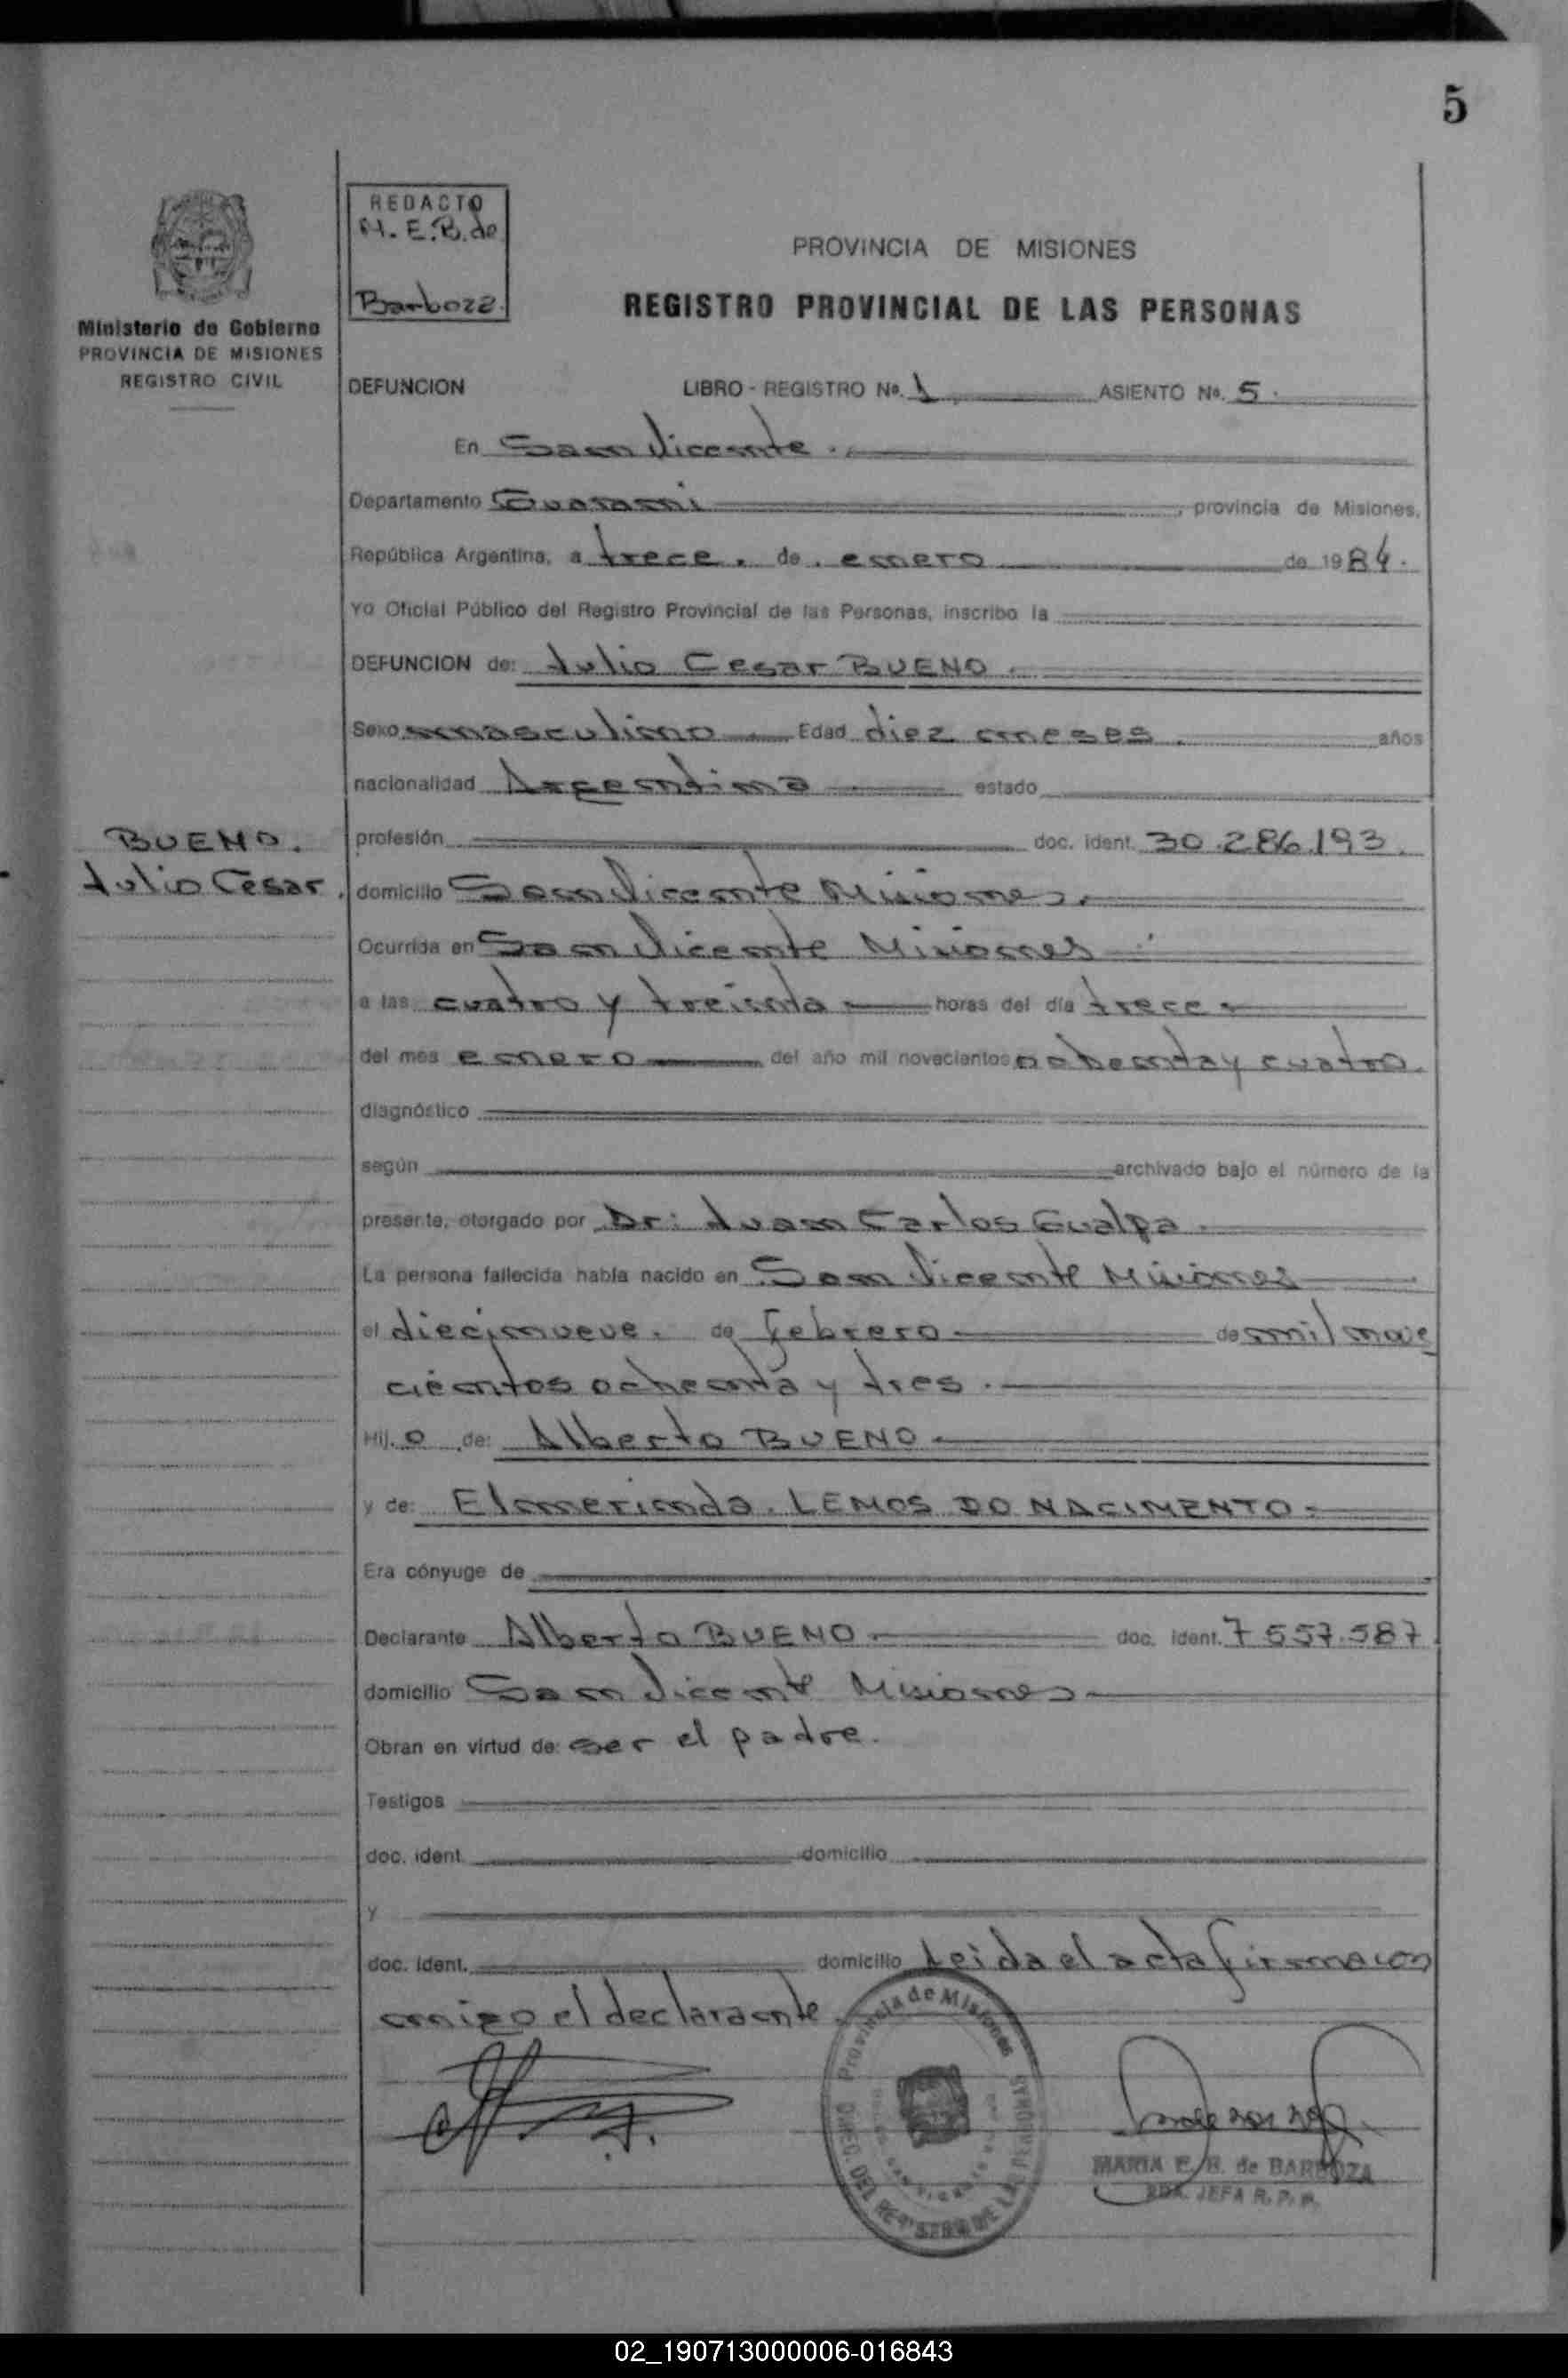 5
REDACTO
M. E. B. de
Barboza.
Ministerio de Gobierno
PROVINCIA DE MISIONES
REGISTRO CIVIL
PROVINCIA DE MISIONES
REGISTRO PROVINCIAL DE LAS PERSONAS
DEFUNCION LIBRO - REGISTRO No. 1 ASIENTO No. 5.
En San Vicente.
Departamento Guarani, provincia de Misiones,
República Argentina, a trece. de. enero de 1984.
Yo Oficial Público del Registro Provincial de las Personas, inscribo la
DEFUNCION de: Julio Cesar BUENO.
Sexo masculino Edad diez meses. años
nacionalidad Argentina estado
BUENO.
Julio Cesar.
profesión doc. ident. 30.286.193.
domicilio San Vicente Misiones.
Ocurrida en San Vicente Misiones
a las cuatro y treinta horas del día trece
del mes enero del año mil novecientos ochenta y cuatro.
diagnóstico
según archivado bajo el número de la
presente, otorgado por Dr: Juan Carlos Gualpa.
La persona fallecida había nacido en San Vicente Misiones
el diecinueve. de febrero de mil nove
cientos ochenta y tres.
Hij. o de: Alberto BUENO
y de: Elmerinda. LEMOS DO NACIMENTO
Era cónyuge de
Declarante Alberto BUENO doc. ident. 7 557.587
domicilio San Vicente Misiones
Obran en virtud de: ser el padre.
Testigos
doc. ident. domicilio
y
doc. ident. domicilio Leida el acta firma con
migo el declarante
Provincia de Misiones
MARIA E. B. de BARBOZA
JEFA R. P. P.
02_190713000006-016843